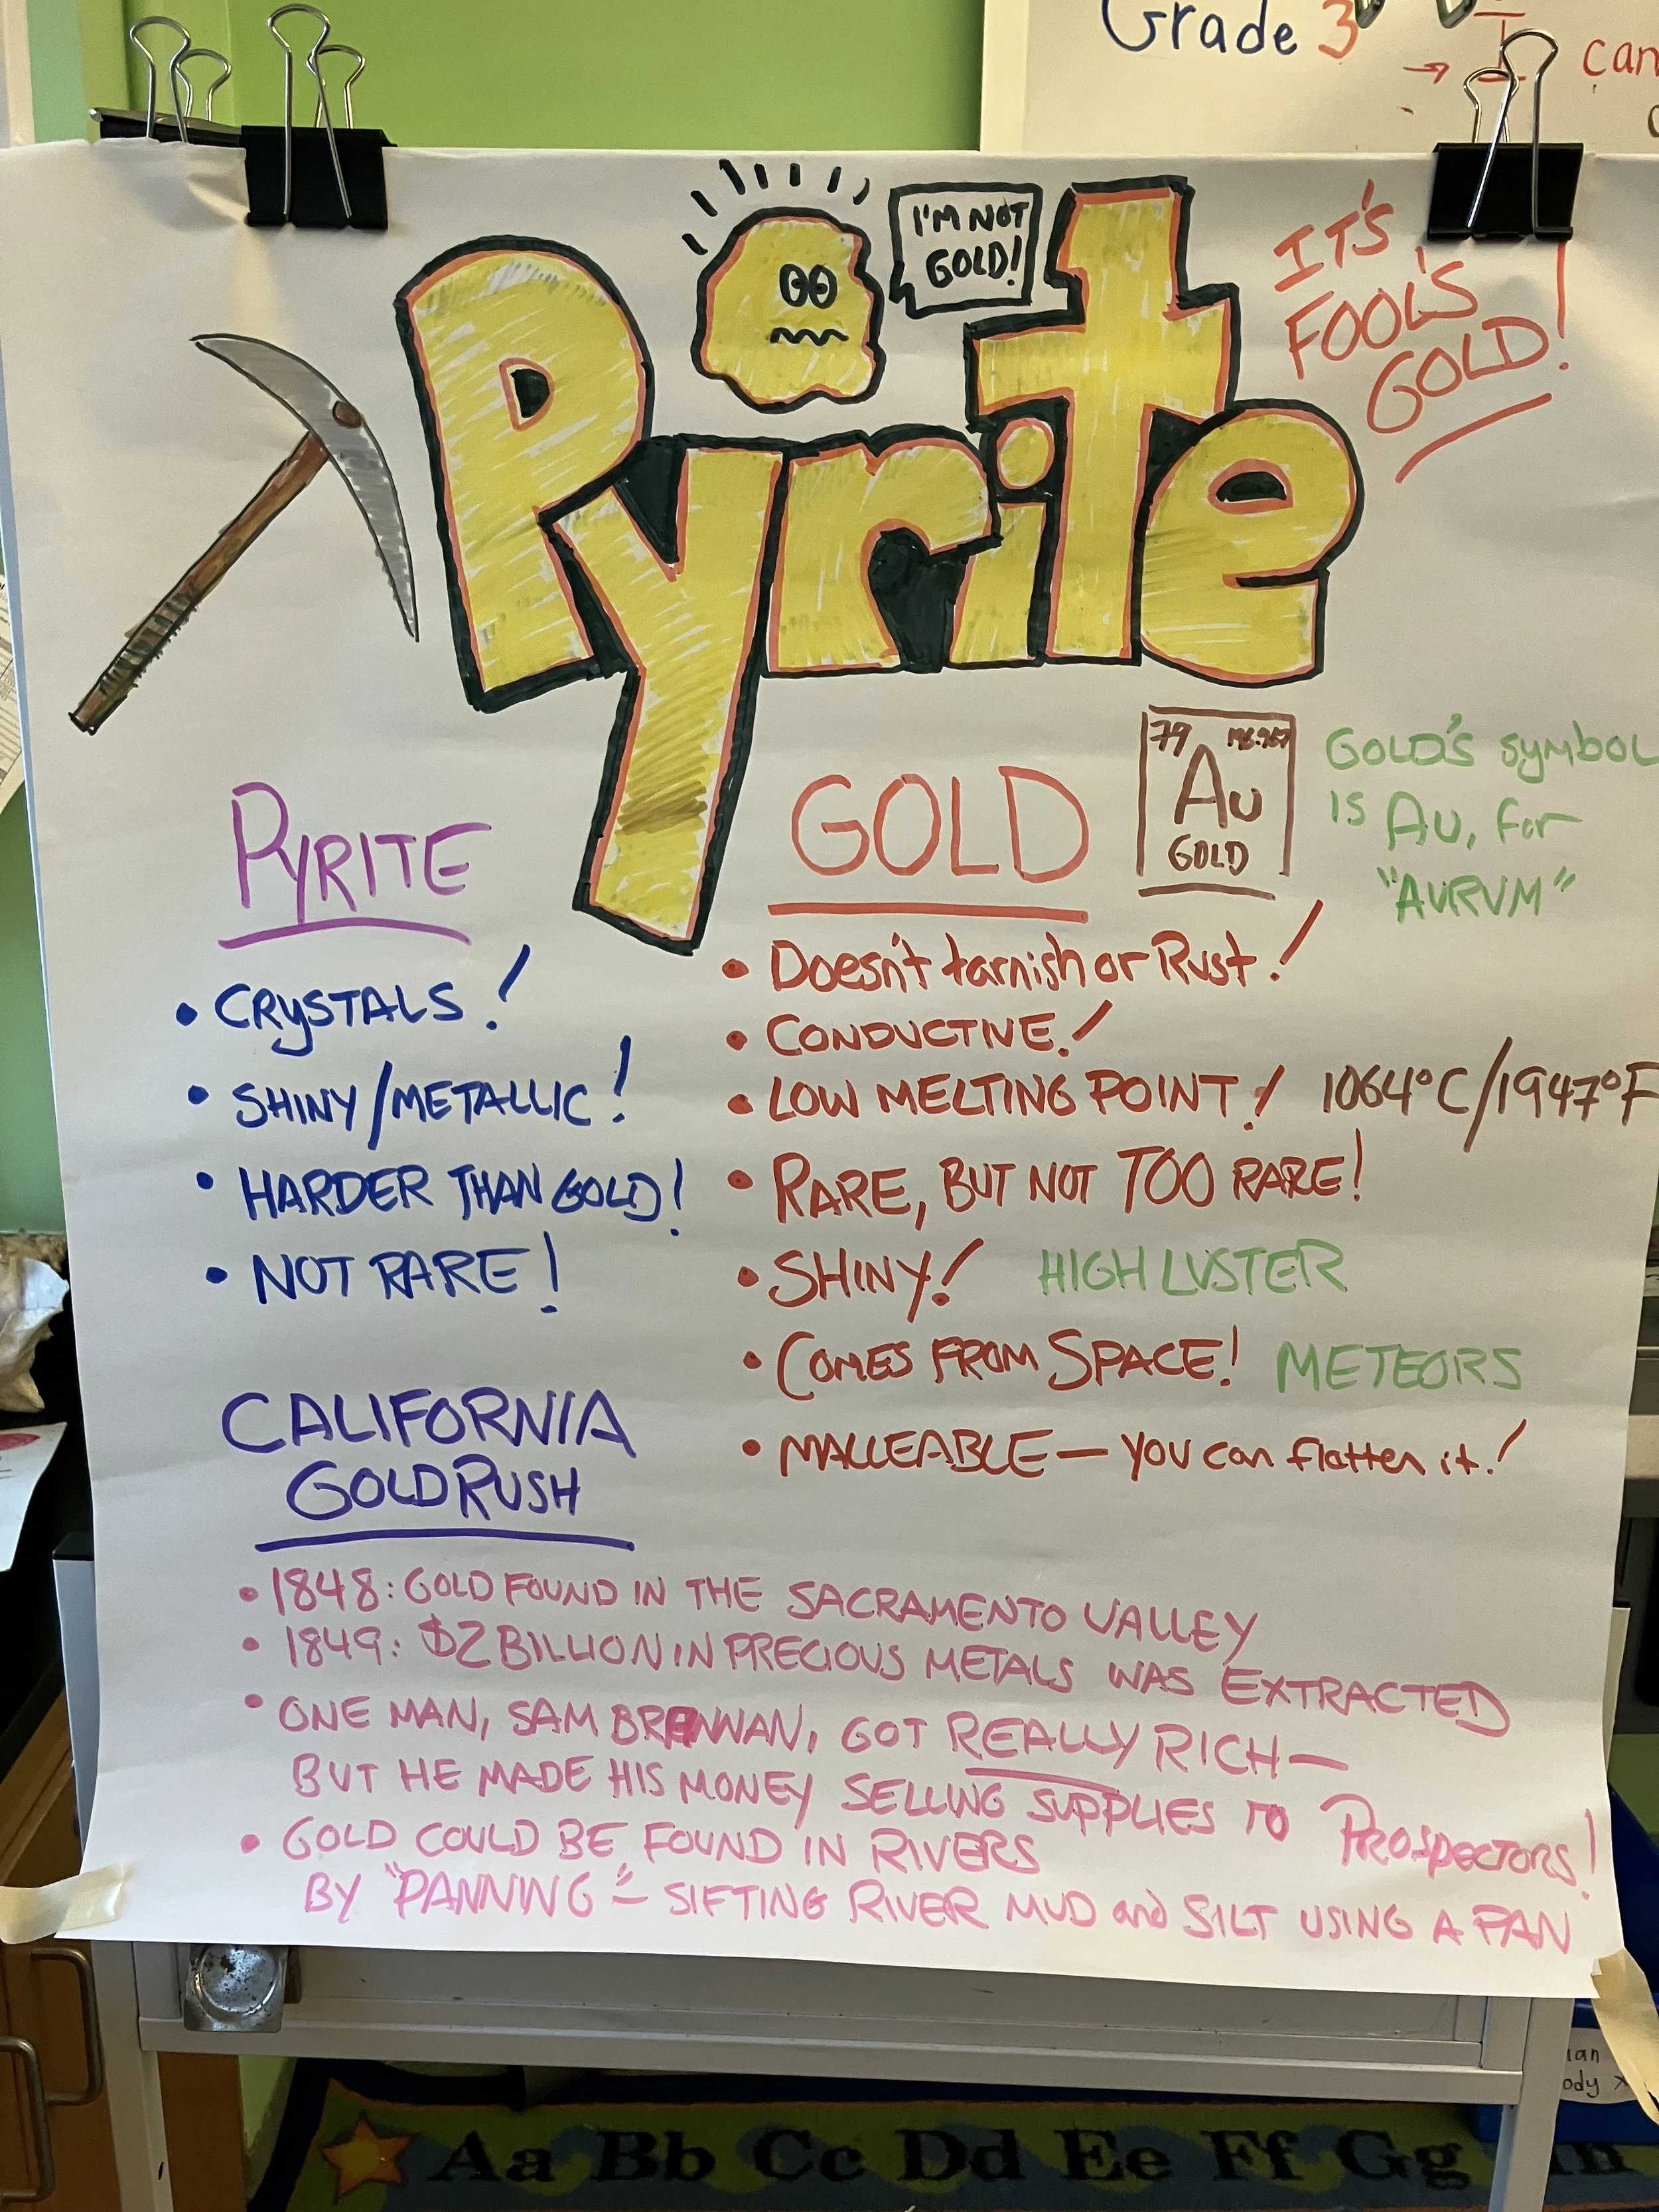 Grade 3
can
I'M NOT
GOLD!
IT'S
FOOL'S
GOLD!
Pyrite
79 196.967
Au
GOLD
GOLD'S symbol
IS Au, for
"AURUM"
PYRITE
• CRYSTALS!
• SHINY/METALLIC!
• HARDER THAN GOLD!
• NOT RARE!
GOLD
• Doesn't tarnish or Rust!
• CONDUCTIVE!
• LOW MELTING POINT! 1064°C/1947°F
• RARE, BUT NOT TOO RARE!
• SHINY! HIGH LUSTER
• COMES FROM SPACE! METEORS
• MALLEABLE — you can flatten it!
CALIFORNIA
GOLD RUSH
• 1848: GOLD FOUND IN THE SACRAMENTO VALLEY
• 1849: $2 BILLION IN PRECIOUS METALS WAS EXTRACTED
• ONE MAN, SAM BRENNAN, GOT REALLY RICH—
BUT HE MADE HIS MONEY SELLING SUPPLIES TO PROSPECTORS!
• GOLD COULD BE FOUND IN RIVERS
BY "PANNING" — SIFTING RIVER MUD and SILT USING A PAN
Aa Bb Cc Dd Ee Ff Gg